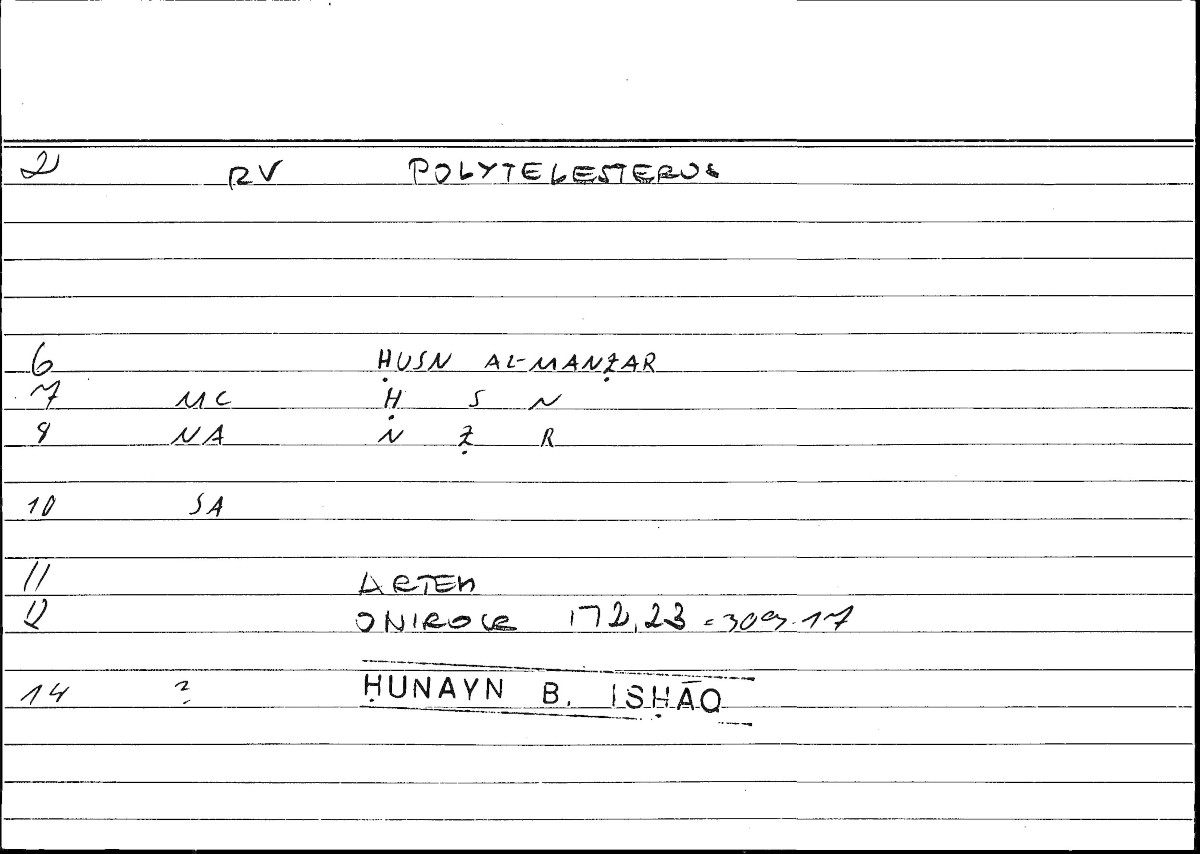 2 RV POLYTELESTEROS
6 ḤUSN AL-MANẒAR
7 MC Ḥ S N
8 NA N Ẓ R
10 SA
11 ARTEM
12 ONIROCR 172,23 = 309.17
14 ? ḤUNAYN B. ISḤĀQ